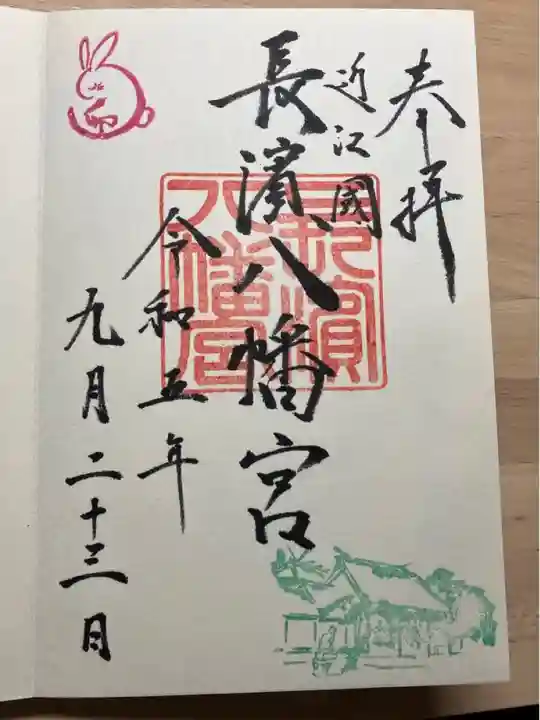 奉拝
近江國
長濱八幡宮
令和五年
九月二十三日
長濱
八幡宮
卯